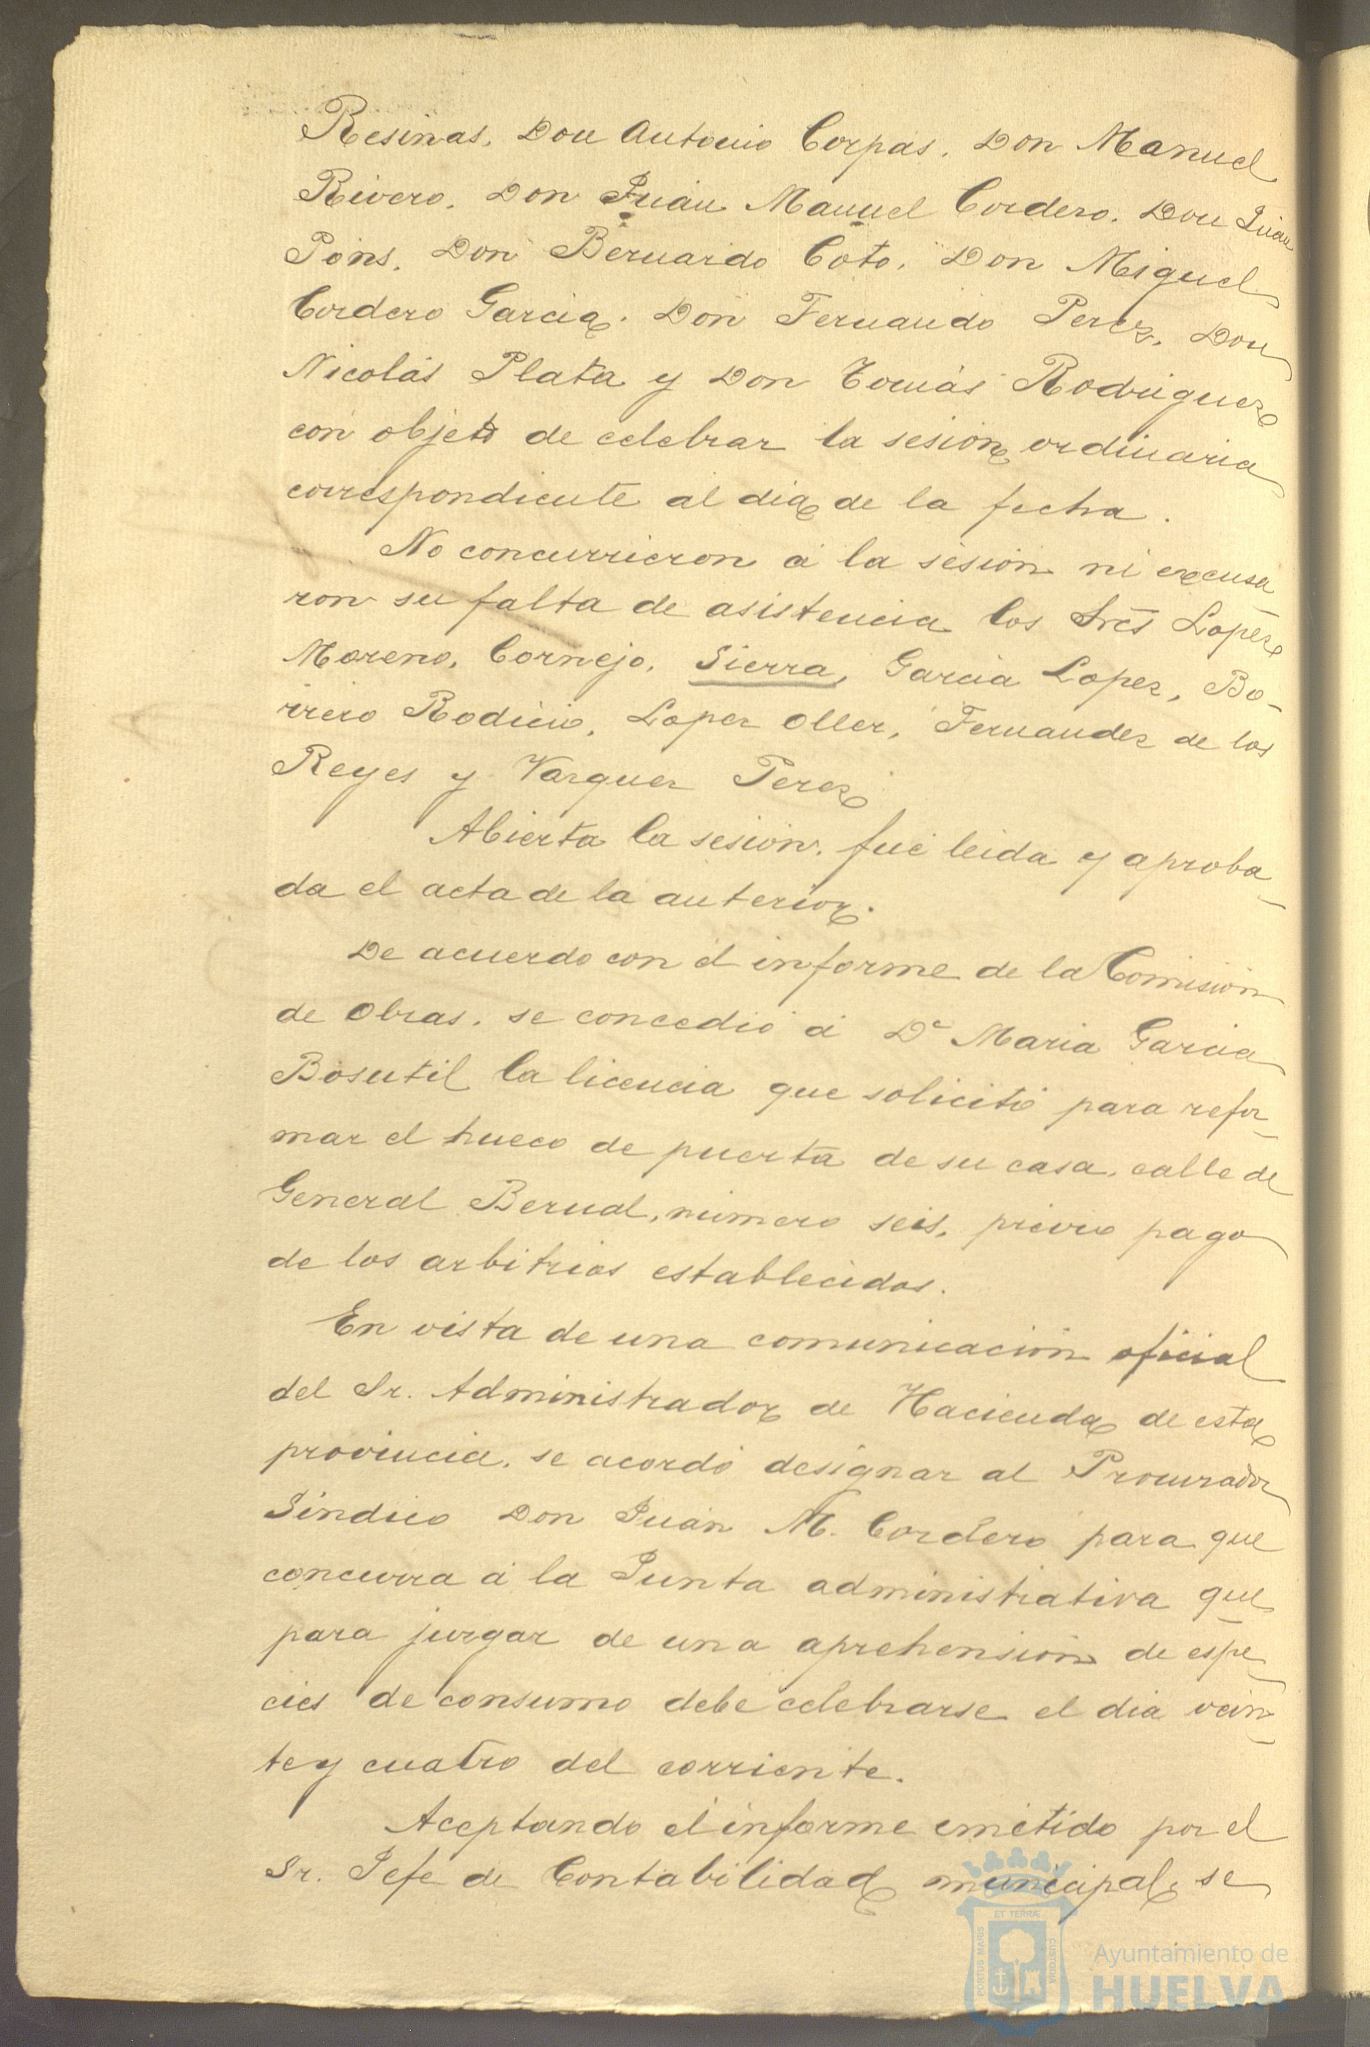 Resinas, Don Antonio Corpas, Don Manuel
Rivero, Don Juan Manuel Cordero, Don Juan
Pons, Don Bernardo Coto, Don Miguel
Cordero Garcia, Don Fernando Perez, Don
Nicolás Plata y Don Tomás Rodriguez
con objeto de celebrar la sesion ordinaria
correspondiente al dia de la fecha.
No concurrieron á la sesion ni excusa
ron su falta de asistencia los Sres Lopez
Moreno, Cornejo, Sierra, Garcia Lopez, Bo-
rrero Rodicio, Lopez Oller, Fernandez de los
Reyes y Vazquez Perez
Abierta la sesión, fué leida y aproba-
da el acta de la anterior.
De acuerdo con el informe de la Comision
de Obras, se concedió á Dª Maria Garcia
Bosutil la licencia que solicitó para refor-
mar el hueco de puerta de su casa, calle de
General Bernal, número seis, previo pago
de los arbitrios establecidos.
En vista de una comunicación oficial
del Sr. Administrador de Hacienda de esta
provincia, se acordó designar al Procurador
Síndico Don Juan M. Cordero para que
concurra á la Junta administrativa que
para juzgar de una aprehensión de espe-
cies de consumo debe celebrarse el dia vein-
te y cuatro del corriente.
Aceptando el informe emitido por el
Sr. Jefe de Contabilidad municipal, se
PORTUS MARIS
ET TERRÆ
CUSTODIA
Ayuntamiento de
HUELVA